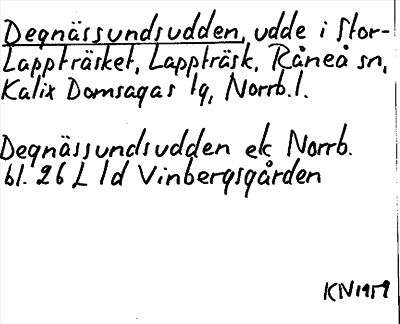 Degnässundsudden, udde i Stor-
Lappträsket, Lappträsk, Råneå sn,
Kalix Domsagas lg, Norrb.l.
Degnässundsudden ek Norrb.
bl. 26 L 1d Vinbergsgården
KN1959